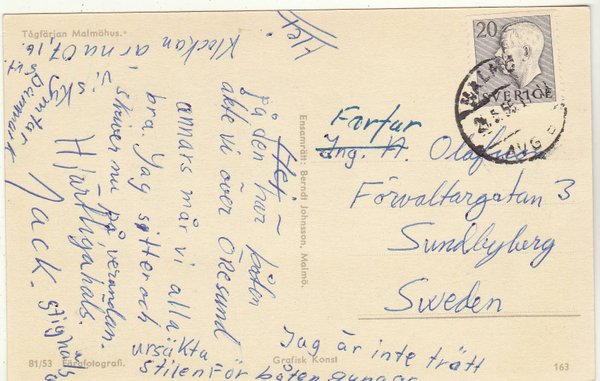 Tågfärjan Malmöhus.
Hej
Klockan är nu 07,16
Hej -
på den här båten
åkte vi över Öresund
annars mår vi alla
bra. Jag sitter och
skriver nu på verandan.
Hjärtligahals.
Jack.
ursäkta
stilen för båten gungar
Jag är inte trött
Ensamrätt: Berndt Johnsson, Malmö.
20
SVERIGE
MALMÖ
AVG
Farfar
Ing. A. Olofsson
Förvaltargatan 3
Sundbyberg
Sweden
81/53 Färgfotografi.
Grafisk Konst
163